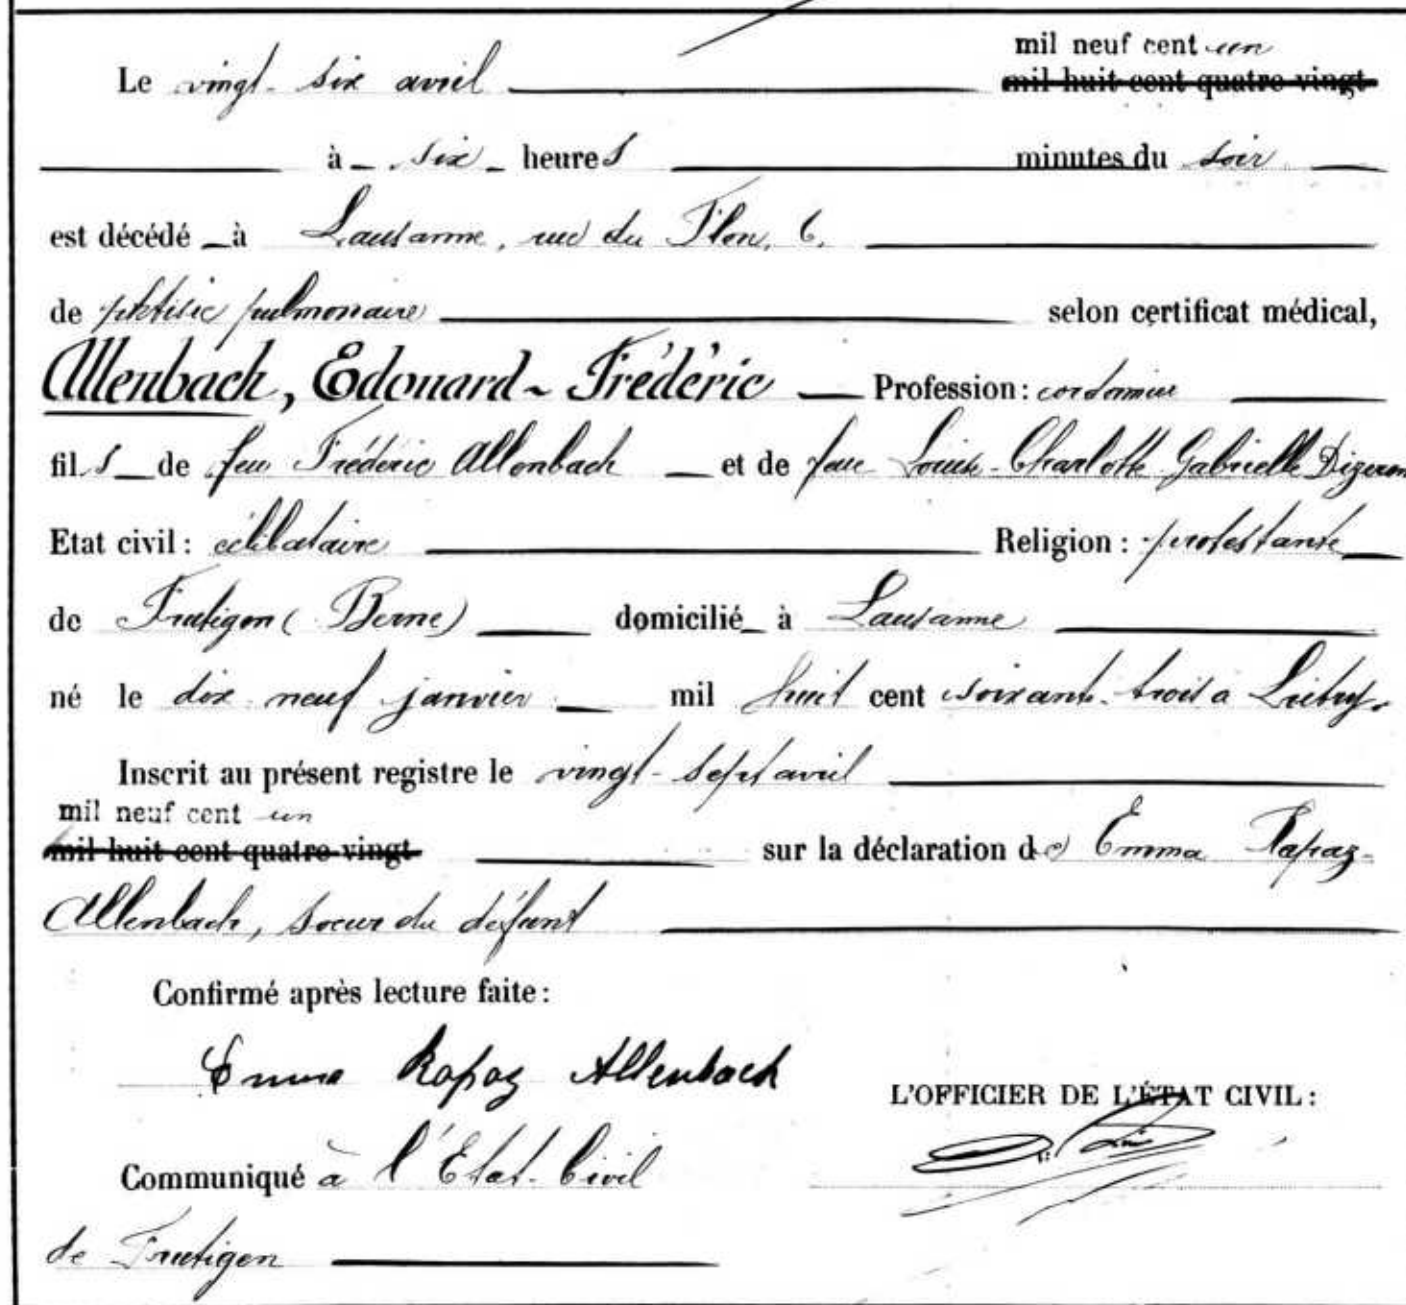 mil neuf cent un
Le vingt-six avril mil huit cent quatre-vingt
à six heures minutes du soir
est décédé à Lausanne, rue du Flon, 6,
de phtisie pulmonaire selon certificat médical,
Allenbach, Edouard-Frédéric Profession: cordonnier
fils de feu Frédéric Allenbach et de feue Louise-Charlotte-Gabrielle Dizerens
Etat civil: célibataire Religion: protestante
de Frutigen (Berne) domicilié à Lausanne
né le dix-neuf janvier mil huit cent soixante-trois à Lutry.
Inscrit au présent registre le vingt-sept avril
mil neuf cent un
mil huit cent quatre-vingt sur la déclaration de Emma Rapaz-
Allenbach, soeur du défunt
Confirmé après lecture faite:
Emma Rapaz Allenbach
L'OFFICIER DE L'ÉTAT CIVIL:
Communiqué à l'Etat-Civil
de Frutigen